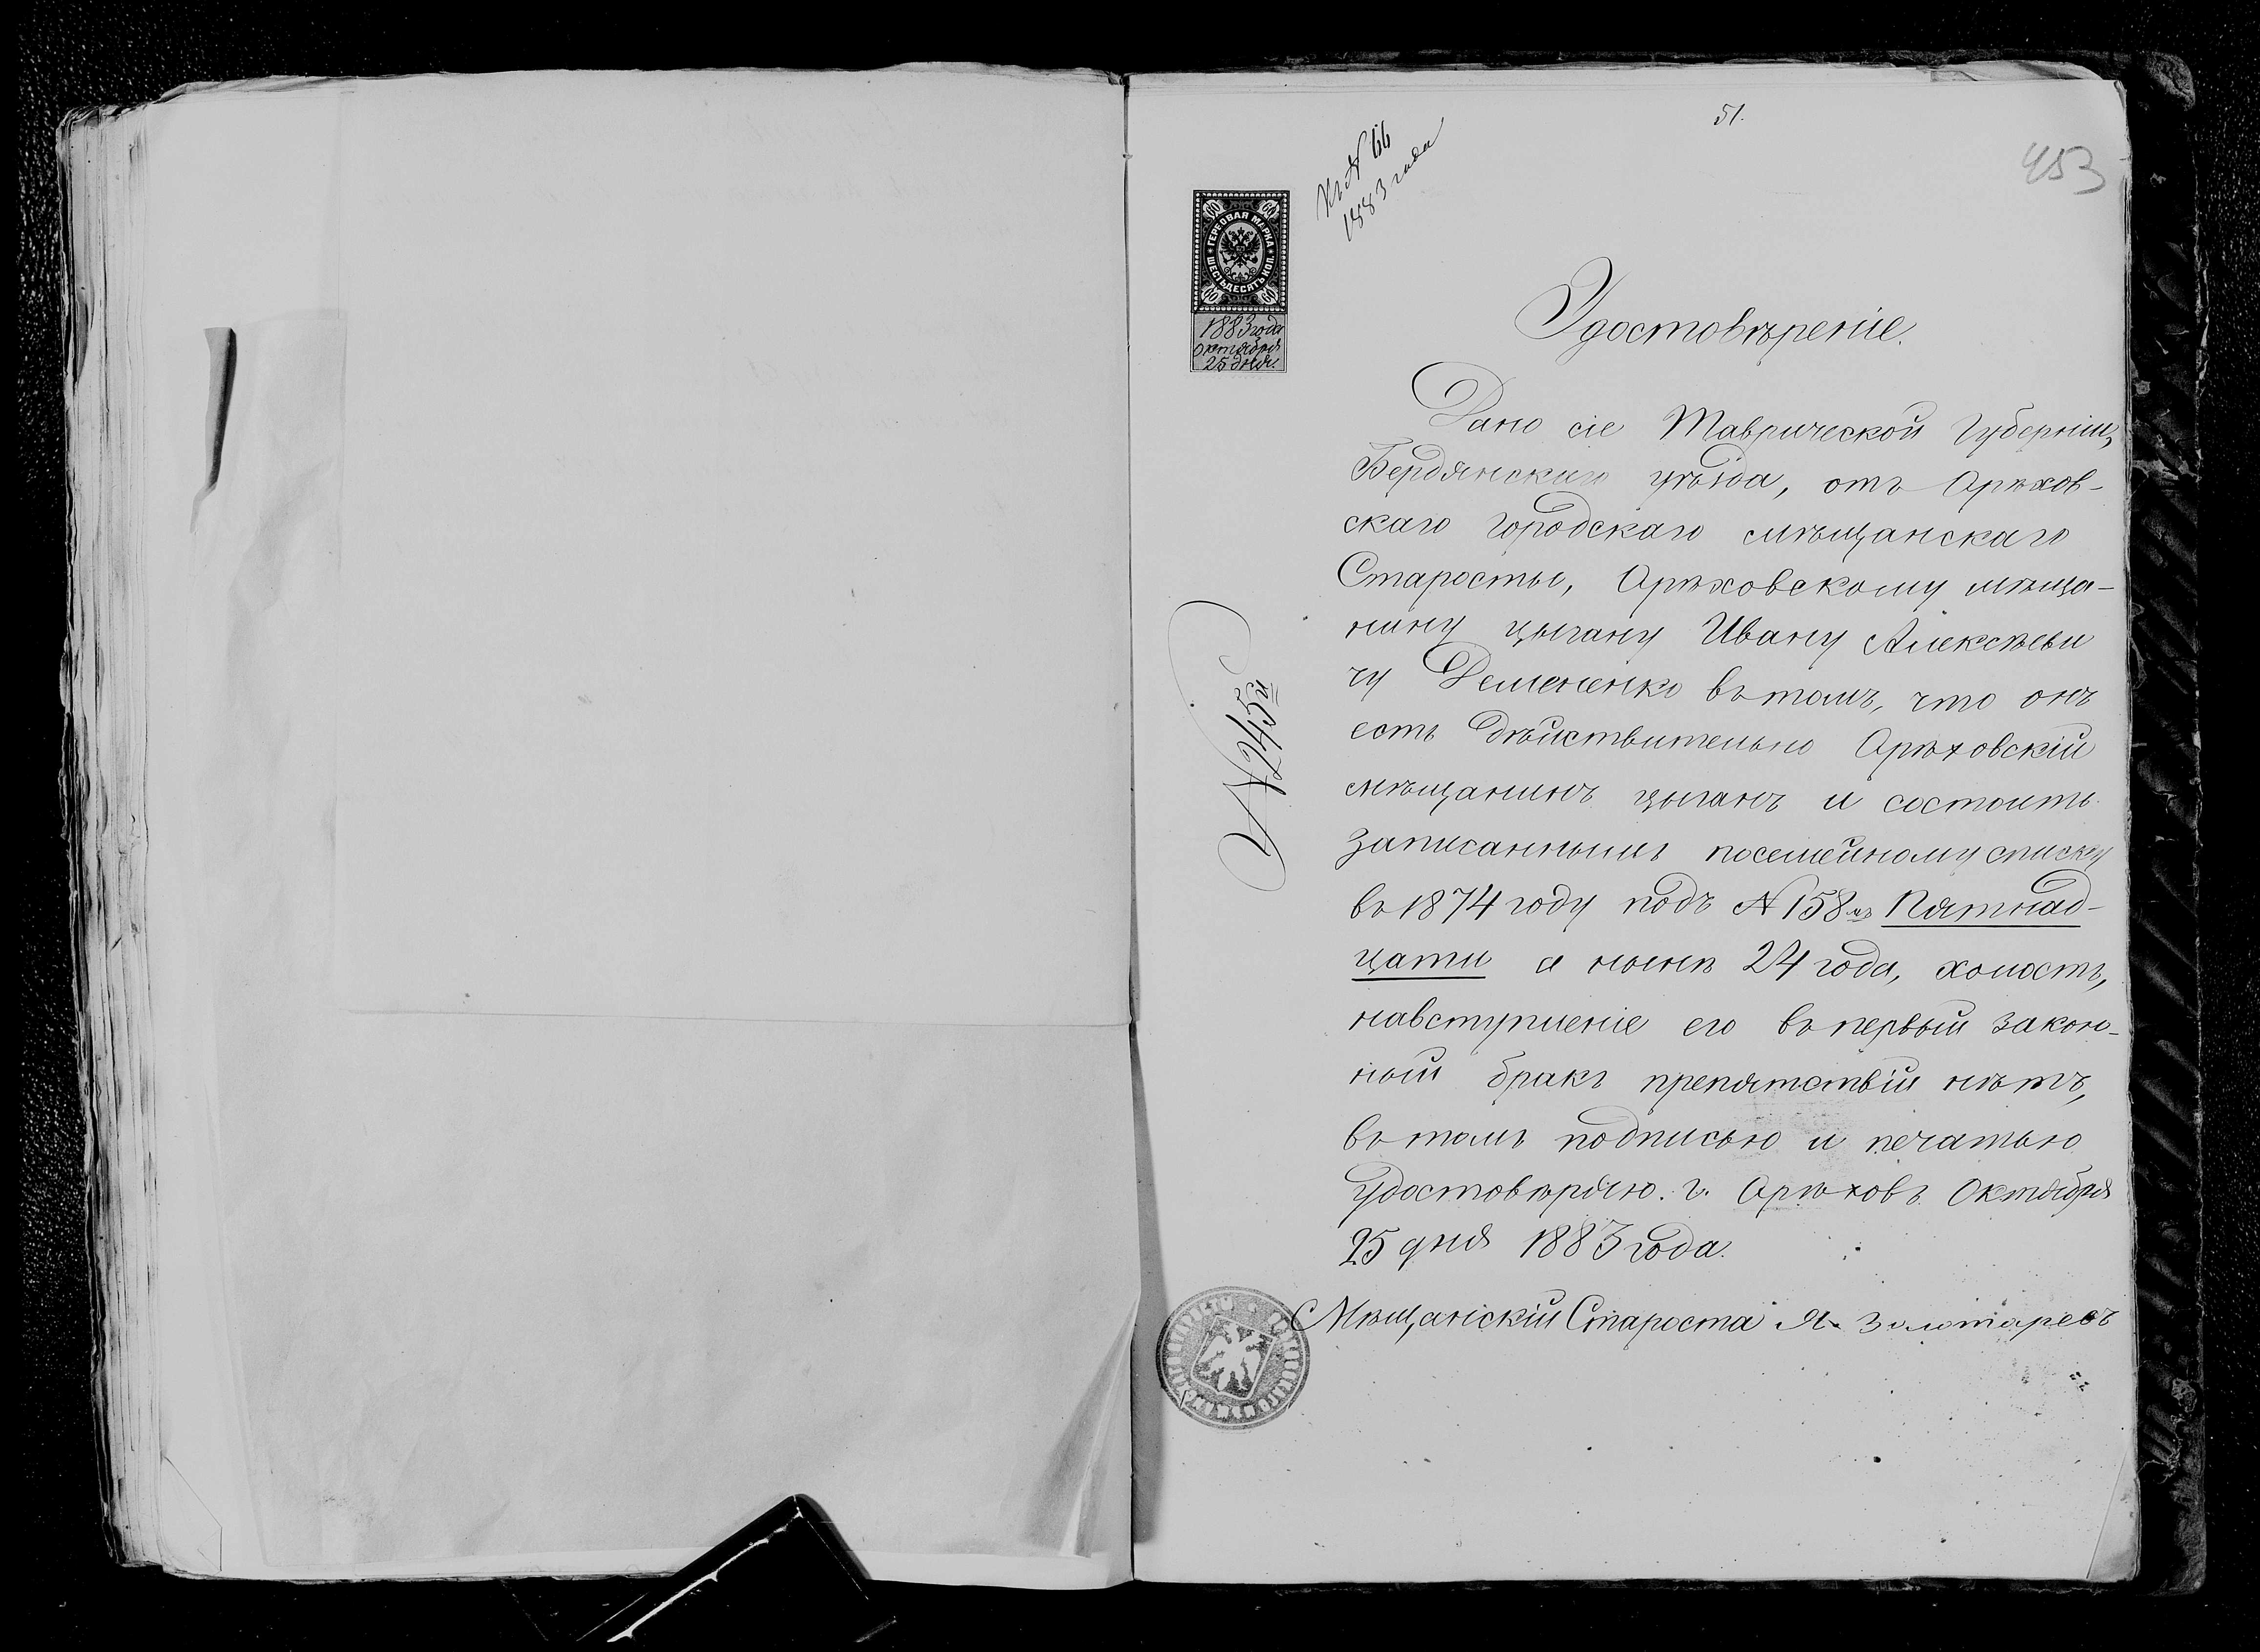 51.
453
Къ № 66
1883 года
60 60
ГЕРБОВАЯ МАРКА
ШЕСТЬДЕСЯТЪ КОП.
60 60
1883 года
Октября
25 дня.
Удостовѣреніе.
Дано сіе Таврической Губерніи,
Бердянскаго уѣзда, отъ Орѣхов-
скаго городскаго мѣщанскаго
Старосты, Орѣховскому мѣща-
нину цыгану Ивану Алексѣеви
чу Деменченко въ томъ, что онъ
есть дѣйствительно Орѣховскій
мѣщанинъ цыганъ и состоитъ
записаннымъ посемейному списку
въ 1874 году подъ № 158мъ Пятнад-
цати а нынѣ 24 года, холостъ,
навступленіе его въ первый закон-
ный бракъ препятствій нѣтъ,
въ томъ подписью и печатью
удостовѣряю. г. Орѣховъ Октября
25 дня 1883 года.
Мѣщанскій Староста Я. Золотаревъ
№ 245й